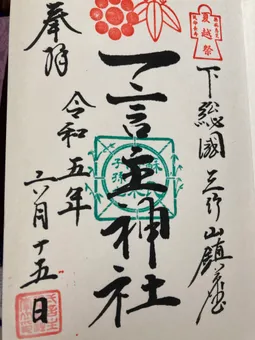 夏越祭
下総國三竹山鎮座
一言主神社
奉拝
令和五年
六月十五日